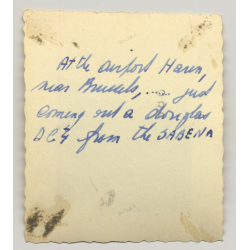 At the airport Haren,
near Brussels, .... just
coming out a Douglas
DC4 from the SABENA